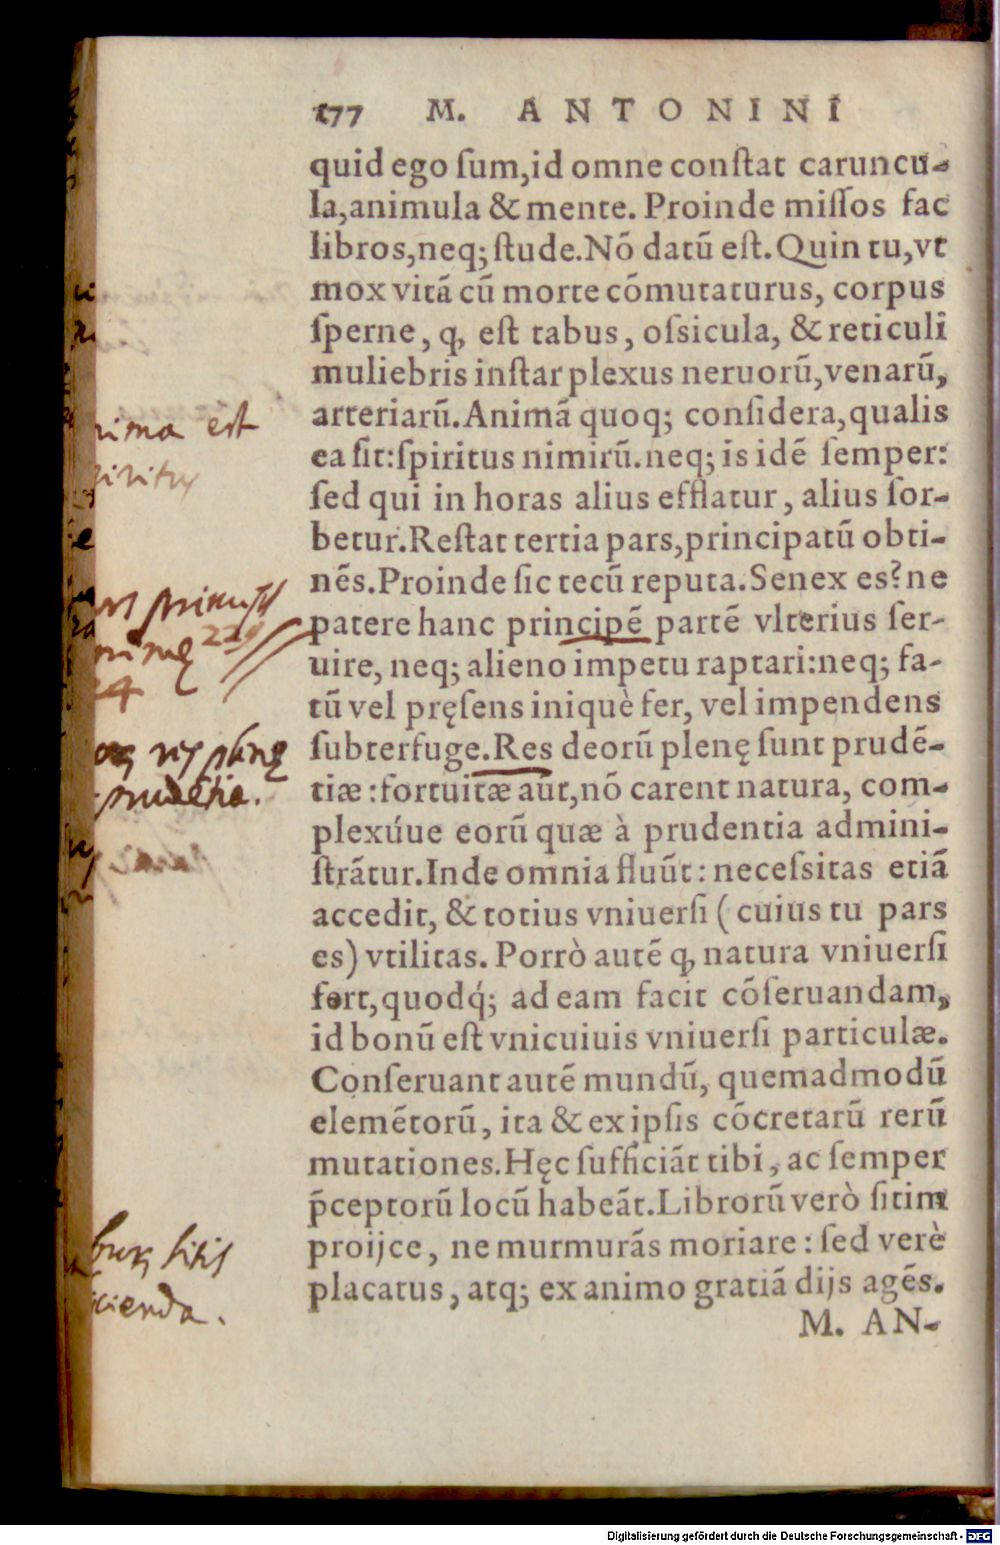 177 M. ANTONINI
quid ego ſum,id omne conſtat caruncu-
la,animula & mente. Proinde miſſos fac
libros,neq; ſtude.Nō datū eſt.Quin tu,vt
mox vitā cū morte cōmutaturus, corpus
ſperne, q, eſt tabus, oſsicula, & reticuli
muliebris inſtar plexus neruorū,venarū,
arteriarū.Animā quoq; conſidera,qualis
ea ſit:ſpiritus nimirū.neq; is idē ſemper:
ſed qui in horas alius efflatur, alius ſor-
betur.Reſtat tertia pars,principatū obti-
nēs.Proinde ſic tecū reputa.Senex es?ne
patere hanc principē partē vlterius ſer-
uire, neq; alieno impetu raptari:neq; fa-
tū vel pręſens iniquè fer, vel impendens
ſubterfuge.Res deorū plenę ſunt prudē-
tiæ:fortuitæ aūt,nō carent natura, com-
plexúue eorū quæ à prudentia admini-
ſtrātur.Inde omnia fluūt: neceſsitas etiā
accedit, & totius vniuerſi (cuius tu pars
es) vtilitas. Porrò autē q, natura vniuerſi
fert,quodq́; ad eam facit cōſeruandam,
id bonū eſt vnicuiuis vniuerſi particulæ.
Conſeruant autē mundū, quemadmodū
elemētorū, ita & ex ipſis cōcretarū rerū
mutationes.Hęc ſufficiāt tibi, ac ſemper
p̄ceptorū locū habeāt.Librorū verò ſitim
proijce, ne murmurās moriare: ſed verè
placatus, atq; ex animo gratiā dijs agēs.
M. AN-
est
prudētia.
sitis
Digitalisierung gefördert durch die Deutsche Forschungsgemeinschaft - DFG